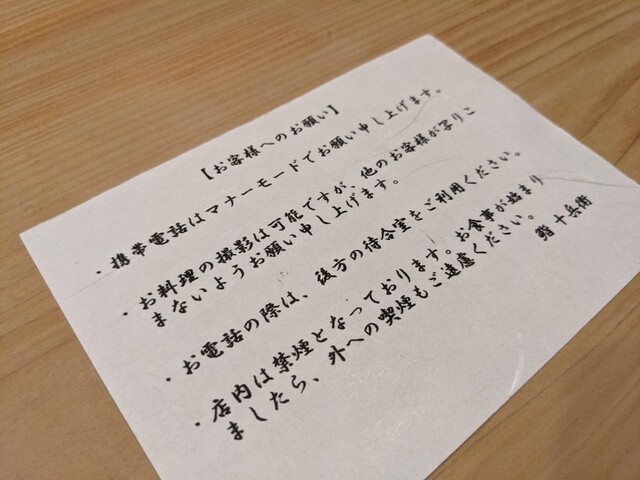 【お客様へのお願い】
・携帯電話はマナーモードでお願い申し上げます。
・お料理の撮影は可能ですが、他のお客様が写りこ
まないようお願い申し上げます。
・お電話の際は、後方の待合室をご利用ください。
・店内は禁煙となっております。お食事が始まり
ましたら、外への喫煙もご遠慮ください。
鮨 十兵衛